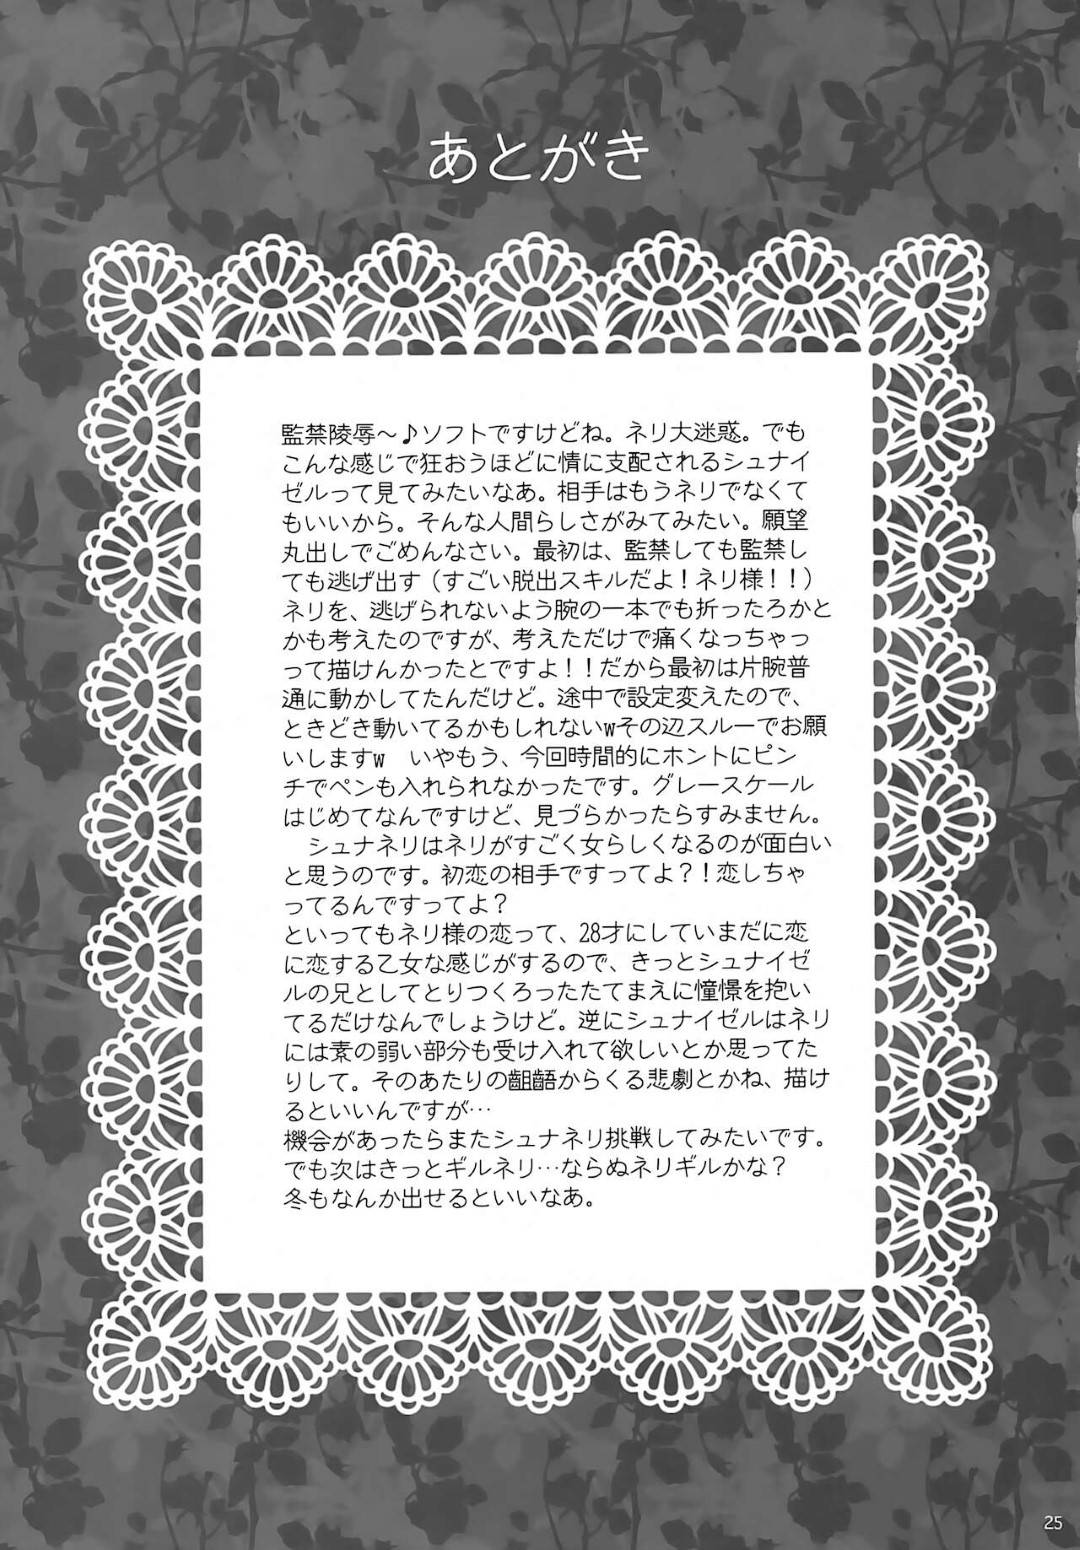 あとがき
監禁陵辱～♪ソフトですけどね。ネリ大迷惑。でも
こんな感じで狂おうほどに情に支配されるシュナイ
ゼルって見てみたいなあ。相手はもうネリでなくて
もいいから。そんな人間らしさがみてみたい。願望
丸出しでごめんなさい。最初は、監禁しても監禁し
ても逃げ出す（すごい脱出スキルだよ！ネリ様！！）
ネリを、逃げられないよう腕の一本でも折ったろかと
かも考えたのですが、考えただけで痛くなっちゃっ
って描けんかったとですよ！！だから最初は片腕普
通に動かしてたんだけど。途中で設定変えたので、
ときどき動いてるかもしれないwその辺スルーでお願
いしますw　いやもう、今回時間的にホントにピン
チでペンも入れられなかったです。グレースケール
はじめてなんですけど、見づらかったらすみません。
　シュナネリはネリがすごく女らしくなるのが面白い
と思うのです。初恋の相手ですってよ？！恋しちゃ
ってるんですってよ？
といってもネリ様の恋って、28才にしていまだに恋
に恋する乙女な感じがするので、きっとシュナイゼ
ルの兄としてとりつくろったたてまえに憧憬を抱い
てるだけなんでしょうけど。逆にシュナイゼルはネリ
には素の弱い部分も受け入れて欲しいとか思ってた
りして。そのあたりの齟齬からくる悲劇とかね、描け
るといいんですが…
機会があったらまたシュナネリ挑戦してみたいです。
でも次はきっとギルネリ…ならぬネリギルかな？
冬もなんか出せるといいなあ。
25